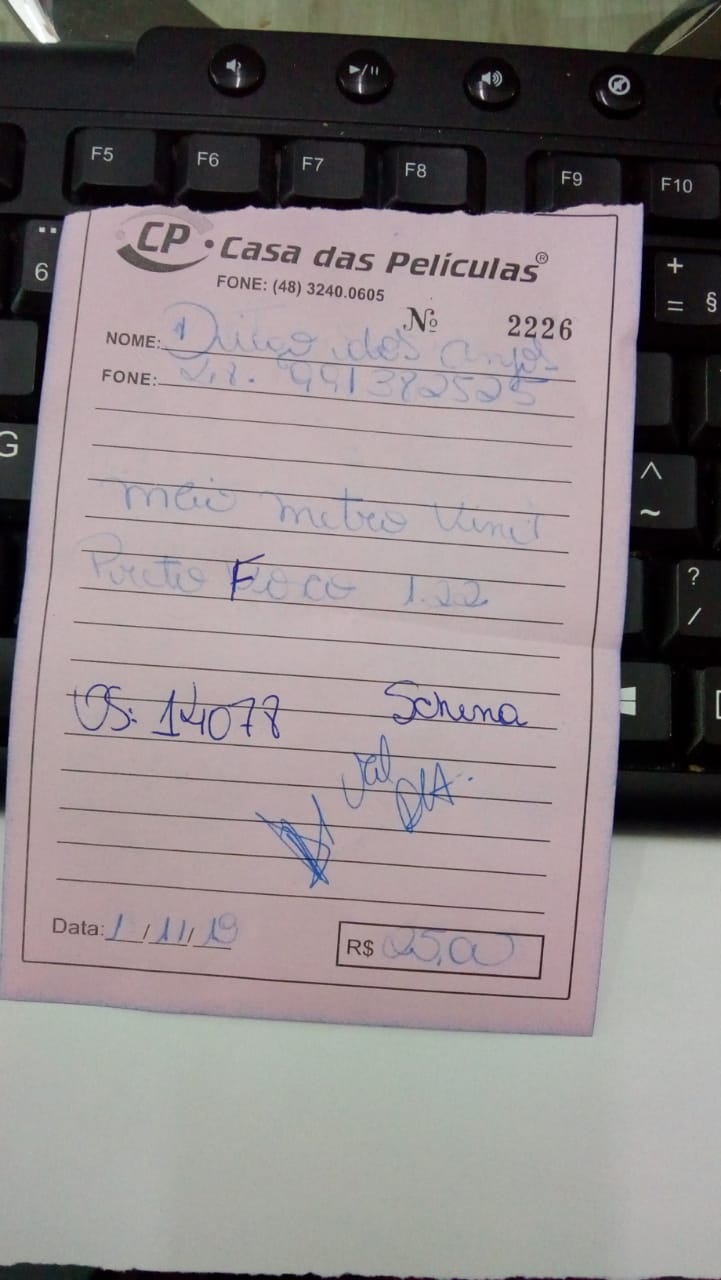 F5 F6 F7 F8 F9 F10
CP • Casa das Películas®
FONE: (48) 3240.0605
Nº 2226
NOME: Diego dos Anjos
FONE: 991382525
6
+
= §
G
^
~
meio metro Vinil
Preto Foco 1.22
?
/
OS: 14078 Schena
Data: 1/11/19
R$ 25,00